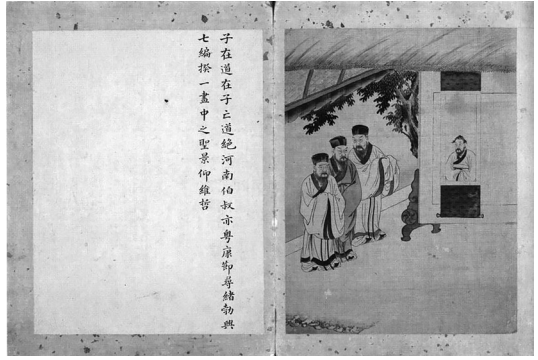 子在道在子亡道絕河南伯叔亦粵康節尋緒勃興
七編揆一畫中之聖景仰維哲